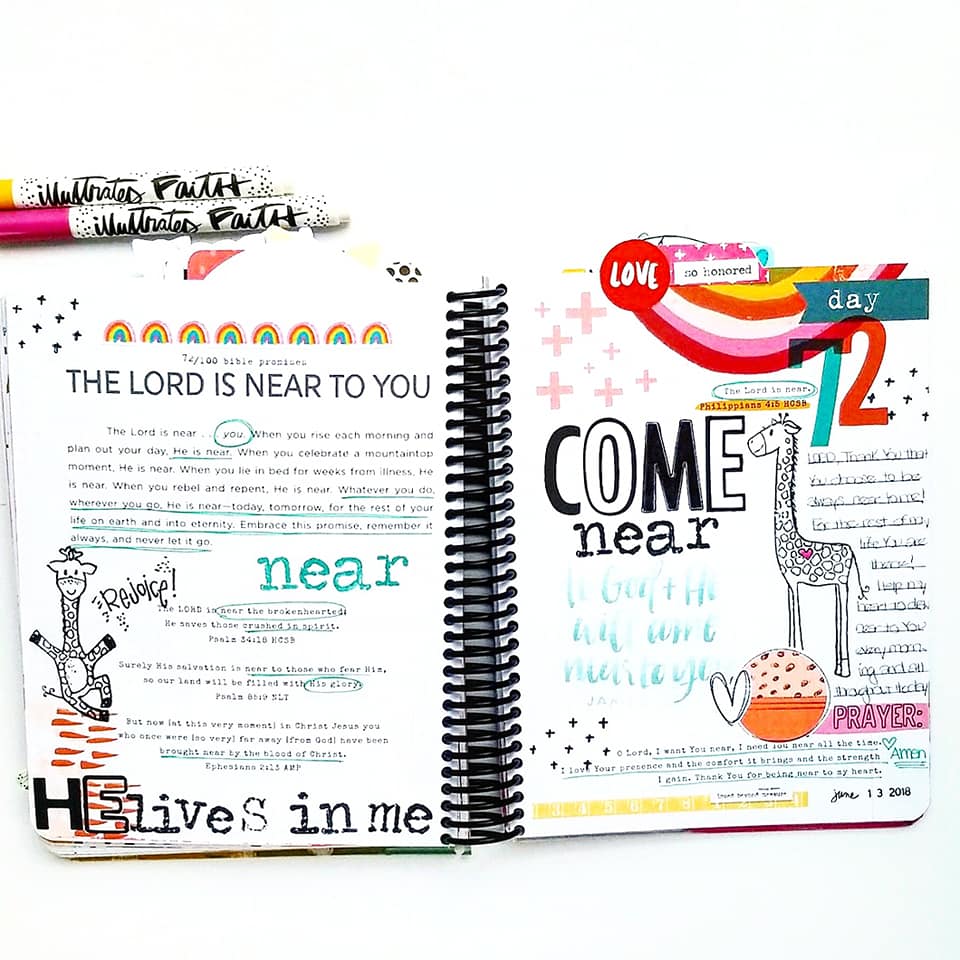 illustrates FAITH
illustrates FAITH
72/100 bible promises
THE LORD IS NEAR TO YOU
The Lord is near . . . you. When you rise each morning and
plan out your day, He is near. When you celebrate a mountaintop
moment, He is near. When you lie in bed for weeks from illness, He
is near. When you rebel and repent, He is near. Whatever you do,
wherever you go, He is near—today, tomorrow, for the rest of your
life on earth and into eternity. Embrace this promise, remember it
always, and never let it go.
near
Rejoice!
The LORD is near the brokenhearted;
He saves those crushed in spirit.
Psalm 34:18 HCSB
Surely His salvation is near to those who fear Him,
so our land will be filled with His glory.
Psalm 85:9 NLT
But now [at this very moment] in Christ Jesus you
who once were [so very] far away [from God] have been
brought near by the blood of Christ.
Ephesians 2:13 AMP
HE lives in me
LOVE
so honored
day
72
The Lord is near.
Philippians 4:5 HCSB
COME
near
to God + He
will come
near to you
LORD, Thank You that
You choose to be
always near to me!
For the rest of my
life You are
there!
Help my
heart to
near to You
every morn
ing and all
throughout
PRAYER:
O Lord, I want You near, I need You near all the time.
I love Your presence and the comfort it brings and the strength
I gain. Thank You for being near to my heart.
Amen
3 4 5 6 7 8
loved beyond measure
june 13 2018